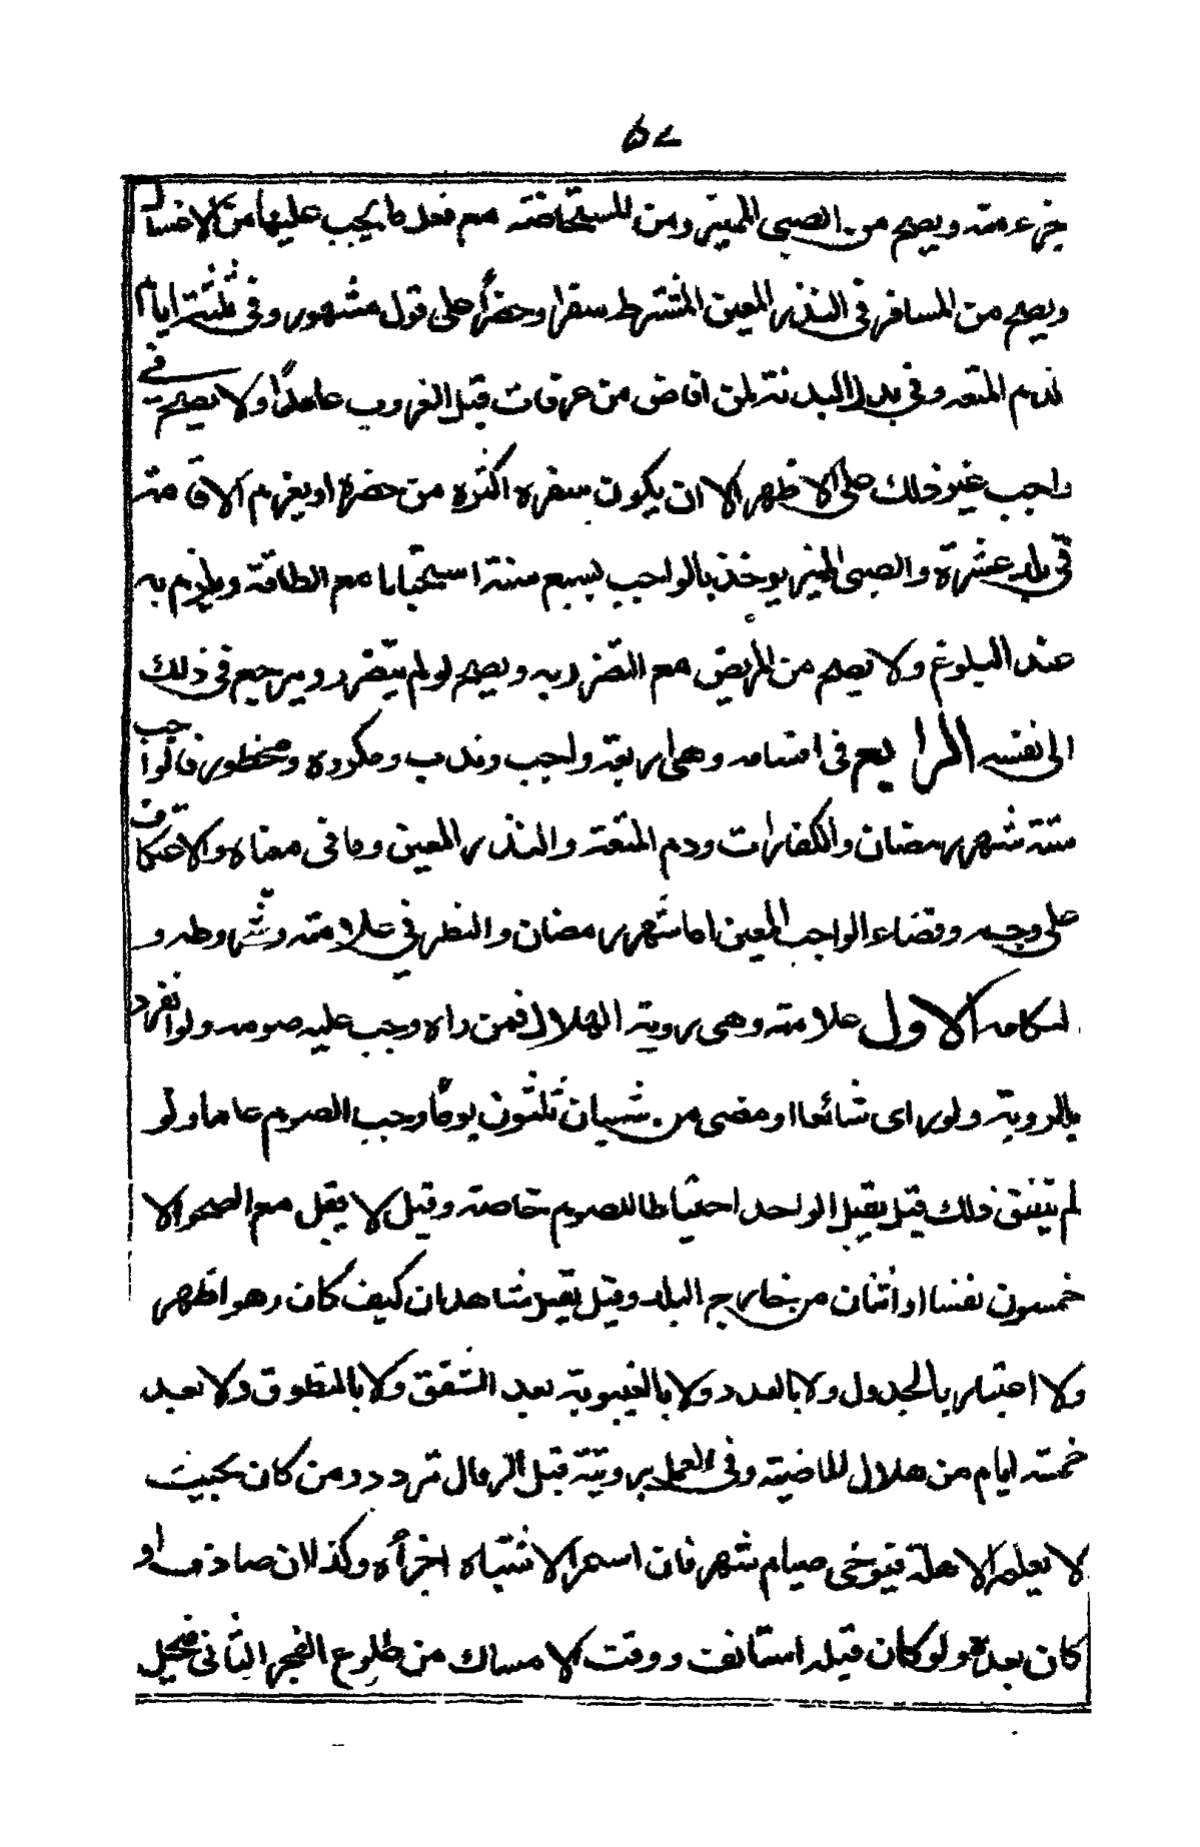 ٥٧
جزء منه ويصح من الصبي المميز ومن المستحاضة مع فعل ما يجب عليها من الاغسال
ويصح من المسافر في النذر المعين المشترط سفرا وحضرا على قول مشهور وفي ثلثة ايام
لدم المتعه وفي بدل البدنة لمن افاض من عرفات قبل الغروب عامدا ولا يصح في
واجب غير ذلك على الاظهر الا ان يكون سفره اكثر من حضره او يعزم الاقامة
في بلد عشرة والصبي المميز يوخذ بالواجب لسبع سنة استحبابا مع الطاقة ويلزم به
عند البلوغ ولا يصح من المريض مع التضرر به ويصح لو لم يتضرر ويرجع في ذلك
الى نفسه الرابع في اقسامه وهي اربعة واجب وندب ومكروه ومحظور فالواجب
ستة شهر رمضان والكفارات ودم المتعة والنذر المعين وما في معناه والاعتكاف
على وجه وقضاء الواجب المعين اما شهر رمضان والنظر في علامته وشروطه و
احكامه الاول علامته وهي روية الهلال فمن راه وجب عليه صومه ولو انفرد
بالروية ولو راى شائعا او مضى من شعبان ثلثون يوما وجب الصوم عاما ولو
لم يتفق ذلك قيل يقبل الواحد احتياطا للصوم خاصة وقيل لا يقبل مع الصحو الا
خمسون نفسا او اثنان من خارج البلد وقيل يقبل شاهدان كيف كان وهو اظهر
ولا اعتبار بالجدول ولا بالعدد ولا بالغيبوية بعد الشفق ولا بالتطوق ولا بعد
خمسة ايام من هلال الماضية وفي العمل برويته قبل الزوال تردد ومن كان بحيث
لا يعلم الاهلة فيتوخى صيام شهر فان استمر الاشتباه اجزأه وكذا ان صادف او
كان بعده ولو كان قبله استانف ووقت الامساك من طلوع الفجر الثاني فيحل